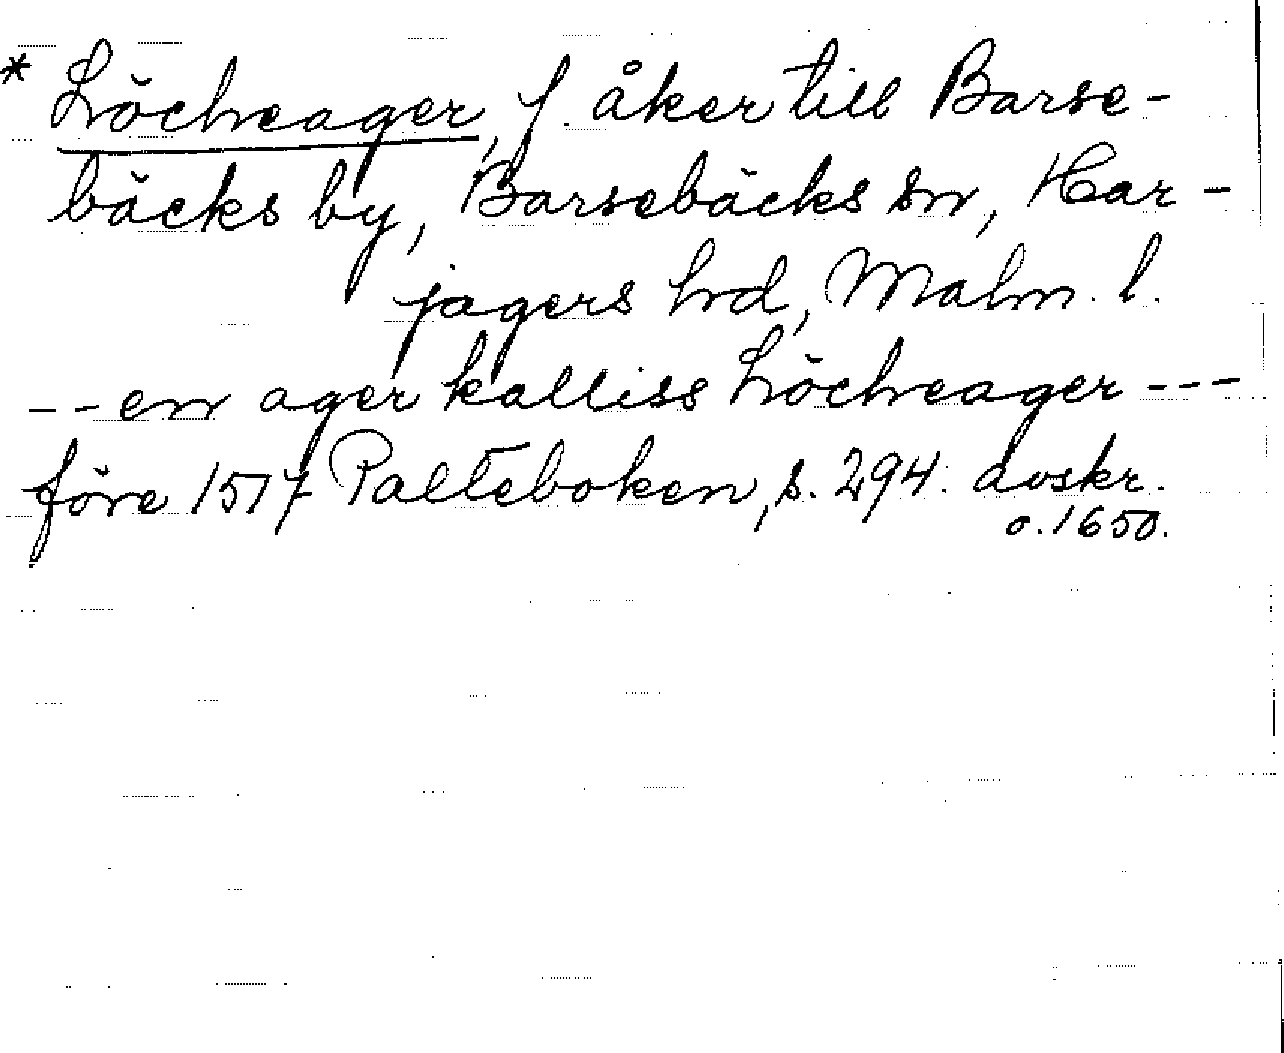 * Löcheager, f. åker till Barse-
bäcks by, Barsebäcks sn, Har-
jagers hd, Malm. l.
-- en ager kalliss Löcheager ---
före 1517 Palteboken, s. 294. avskr.
o. 1650.